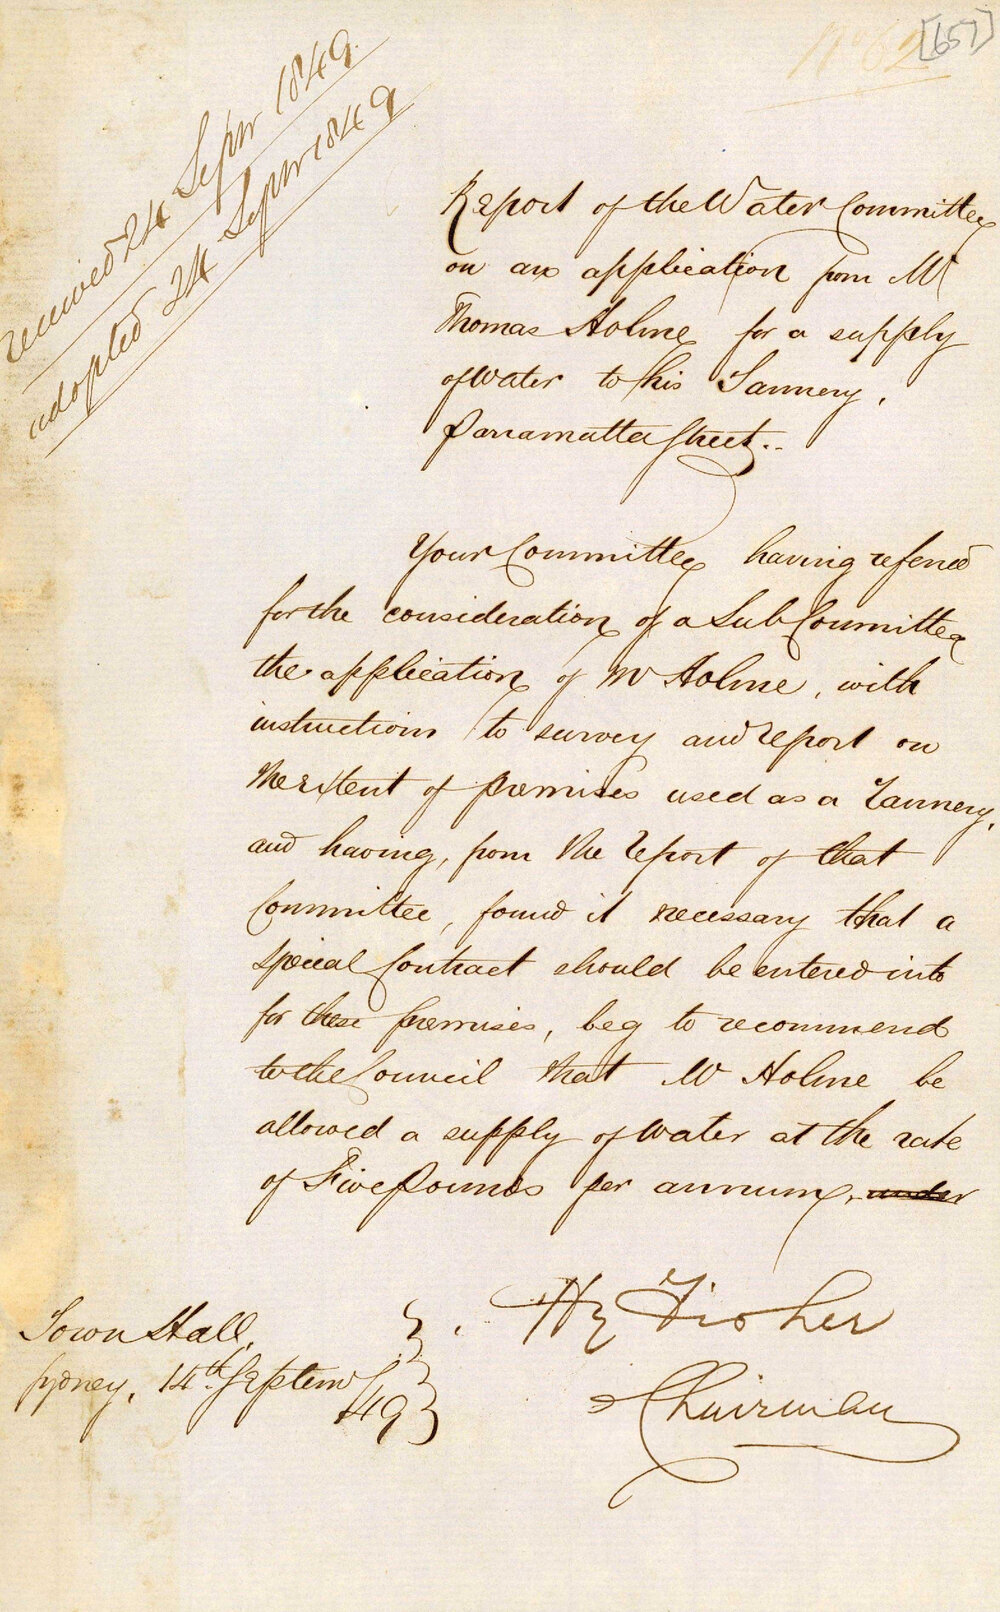 No 62 [657]
received 24 Septr 1849.
adopted 24 Septr 1849
Report of the Water Committee
on an application from Mr
Thomas Holme for a supply
of Water to his Tannery,
Parramatta Street..
Your Committee having referred
for the consideration of a Sub Committee
the application of Mr Holme, with
instructions to survey and report on
the extent of premises used as a Tannery,
and having, from the report of that
Committee, found it necessary that a
special Contract should be entered into
for these premises, beg to recommend
to the Council that Mr Holme be
allowed a supply of Water at the rate
of Five Pounds per annum, under
Hy Fisher
Chairman
Town Hall,
Sydney, 14th Septemr
/49